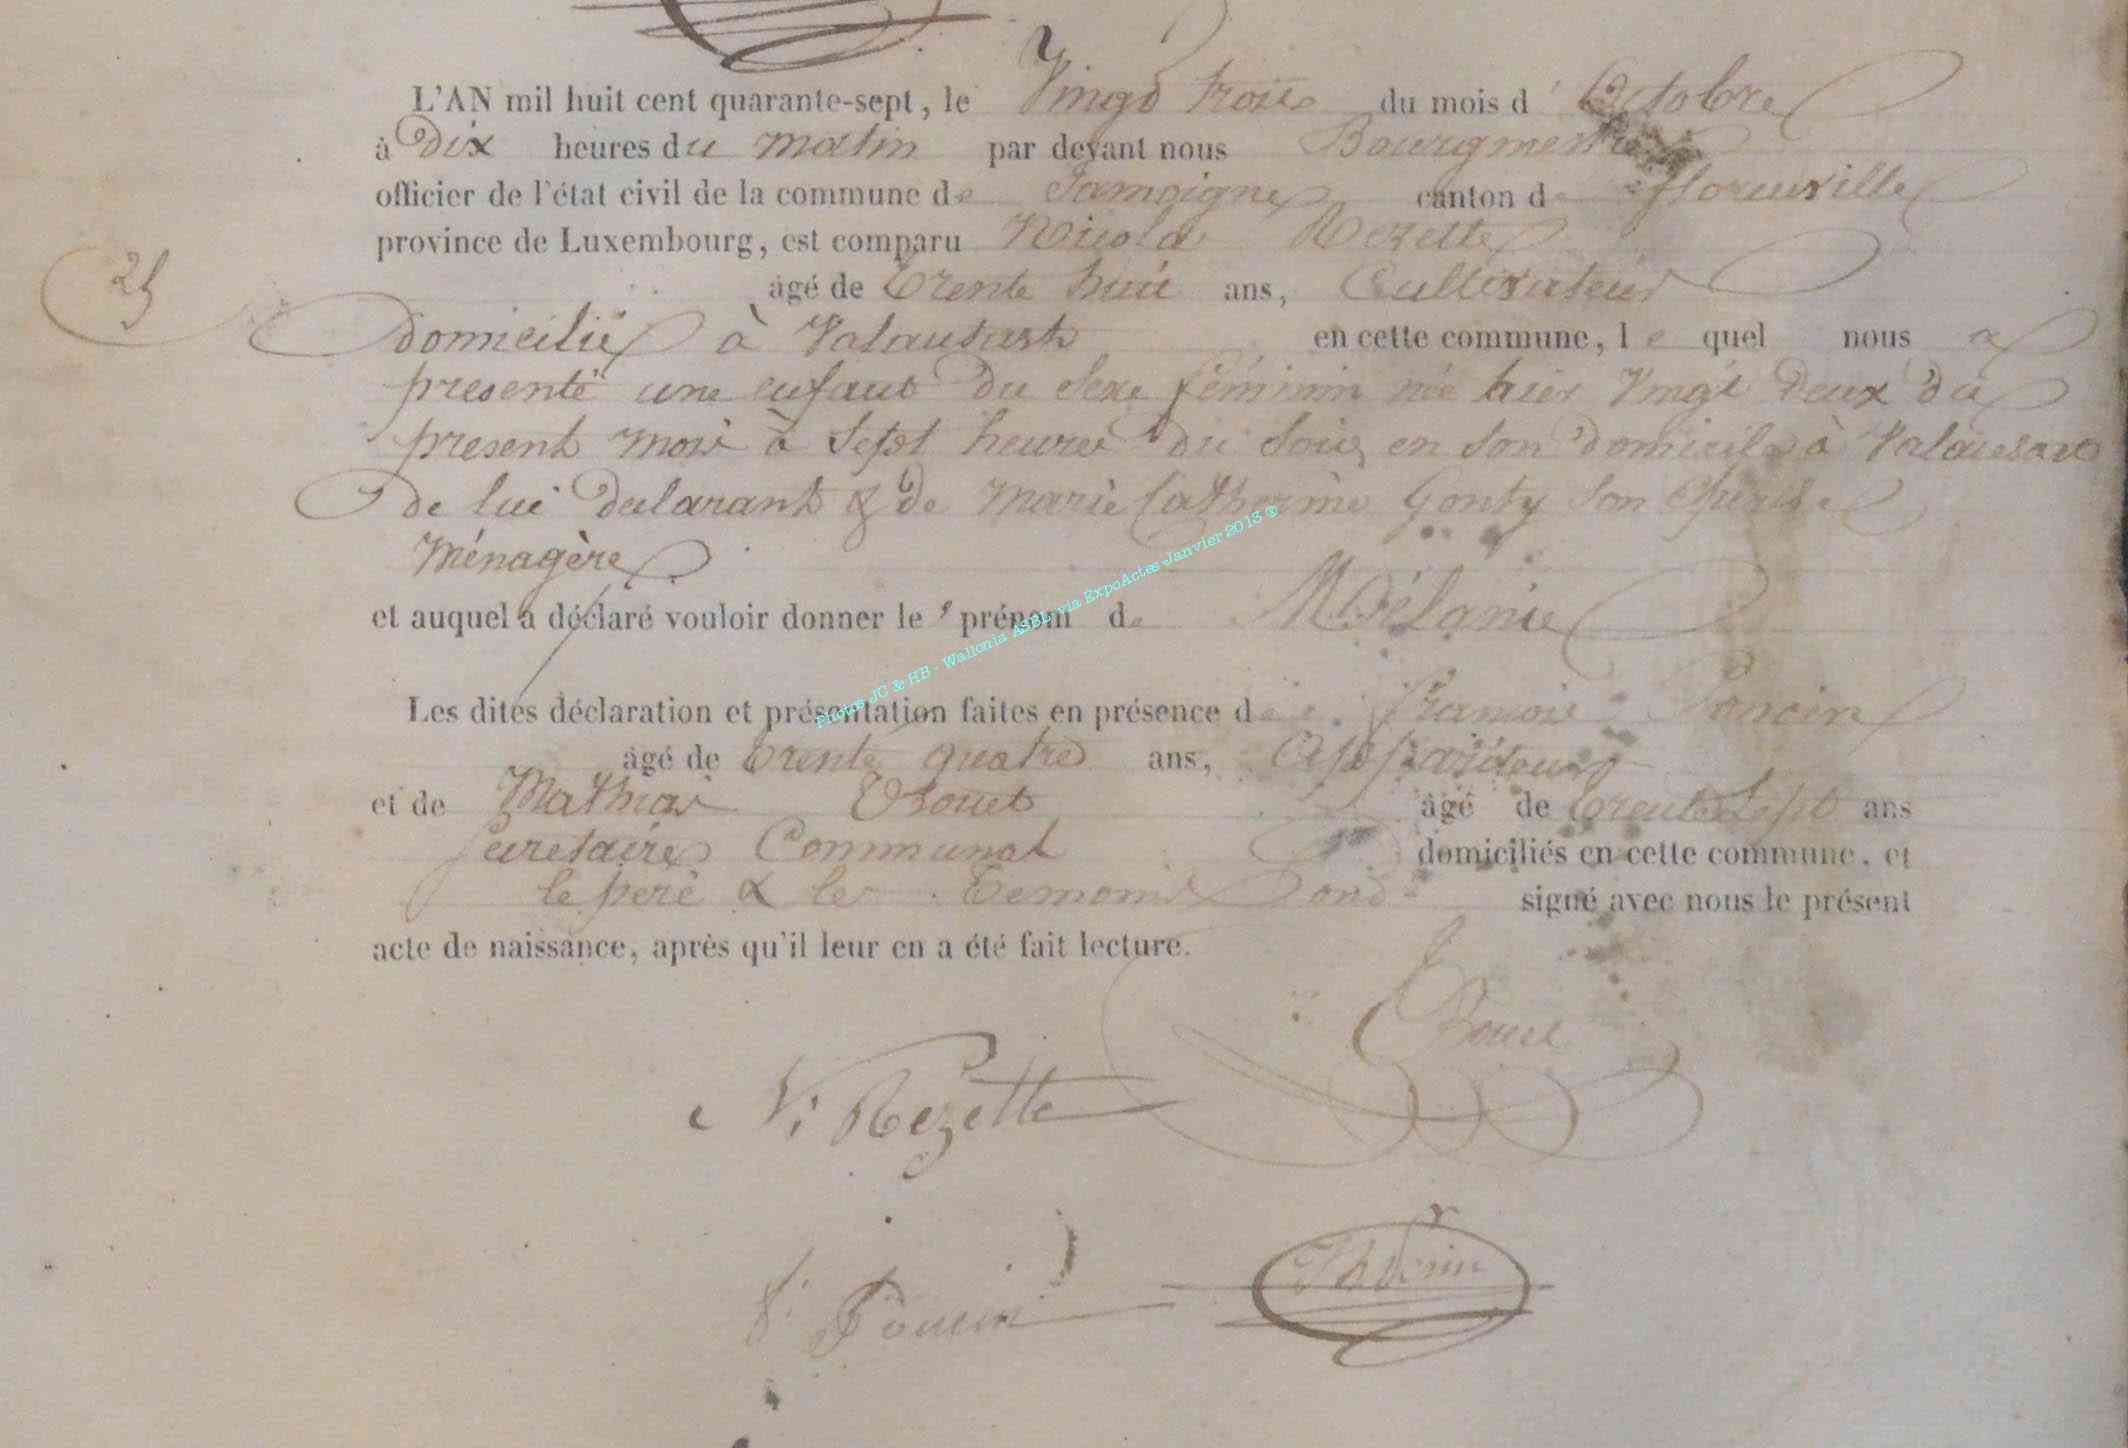 L'AN mil huit cent quarante-sept, le Vingt trois du mois d' Octobre
à Dix heures du matin par devant nous Bourgmestre
officier de l'état civil de la commune de Jamoigne canton de florenville
province de Luxembourg, est comparu Nicolas Rezette
25
âgé de trente huit ans, Cultivateur
domicilié à Valansart en cette commune, le quel nous a
presenté une enfant du sexe féminin née hier Vingt deux du
present mois à sept heures du soir, en son domicile à Valansart
de lui déclarant & de Marie Catherine Gonty son
Ménagère
et auquel a déclaré vouloir donner le prénom de Mélanie
Photos JC & HB - Wallonia ASBL via ExpoActes Janvier 2013 ®
Les dites déclaration et présentation faites en présence de francois Poncin
âgé de trente quatre ans, appariteur
et de Mathias âgé de trente sept ans
secretaire Communal domiciliés en cette commune, et
le père & les temoins ont signé avec nous le présent
acte de naissance, après qu'il leur en a été fait lecture.
N: Rezette
f: Poncin